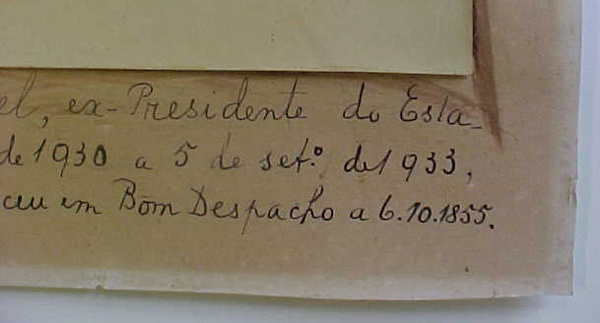 el, ex-Presidente do Esta-
de 1930 a 5 de setº. de 1933,
ceu em Bom Despacho a 6.10.1855.